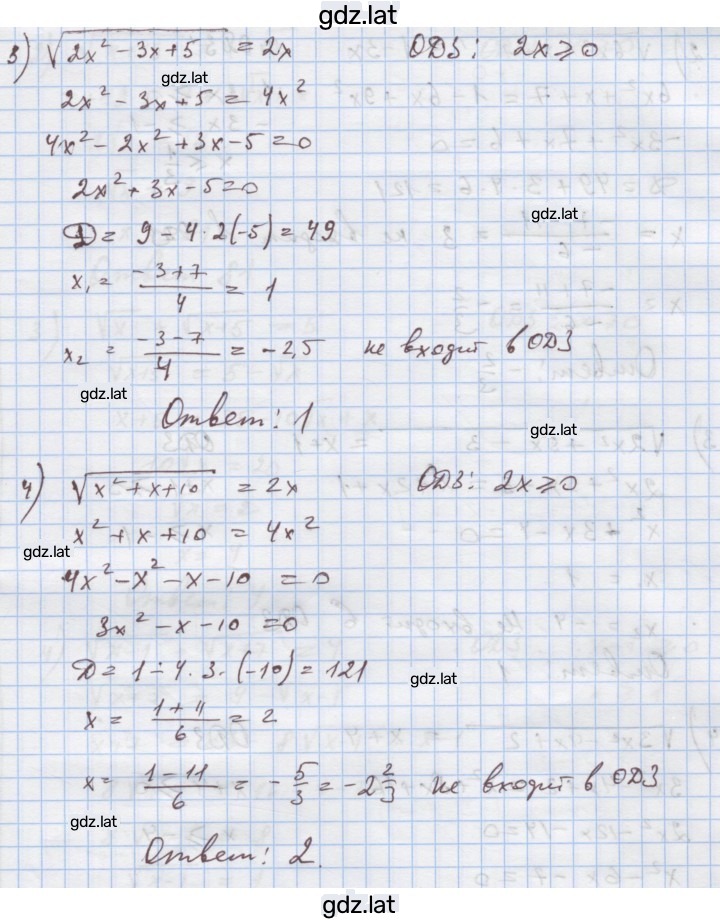 gdz.lat
3) √(2x² - 3x + 5) = 2x ОДЗ: 2x ⩾ 0
gdz.lat
2x² - 3x + 5 = 4x²
4x² - 2x² + 3x - 5 = 0
2x² + 3x - 5 = 0
gdz.lat
D = 9 - 4 · 2(-5) = 49
x₁ = (-3+7)/4 = 1
x₂ = (-3-7)/4 = -2,5 не входит в ОДЗ
gdz.lat
Ответ: 1
gdz.lat
4) √(x² + x + 10) = 2x ОДЗ: 2x ⩾ 0
x² + x + 10 = 4x²
gdz.lat
4x² - x² - x - 10 = 0
3x² - x - 10 = 0
D = 1 - 4 · 3 · (-10) = 121
gdz.lat
x = (1+11)/6 = 2
x = (1-11)/6 = -5/3 = -2 2/3 не входит в ОДЗ
gdz.lat
Ответ: 2.
gdz.lat